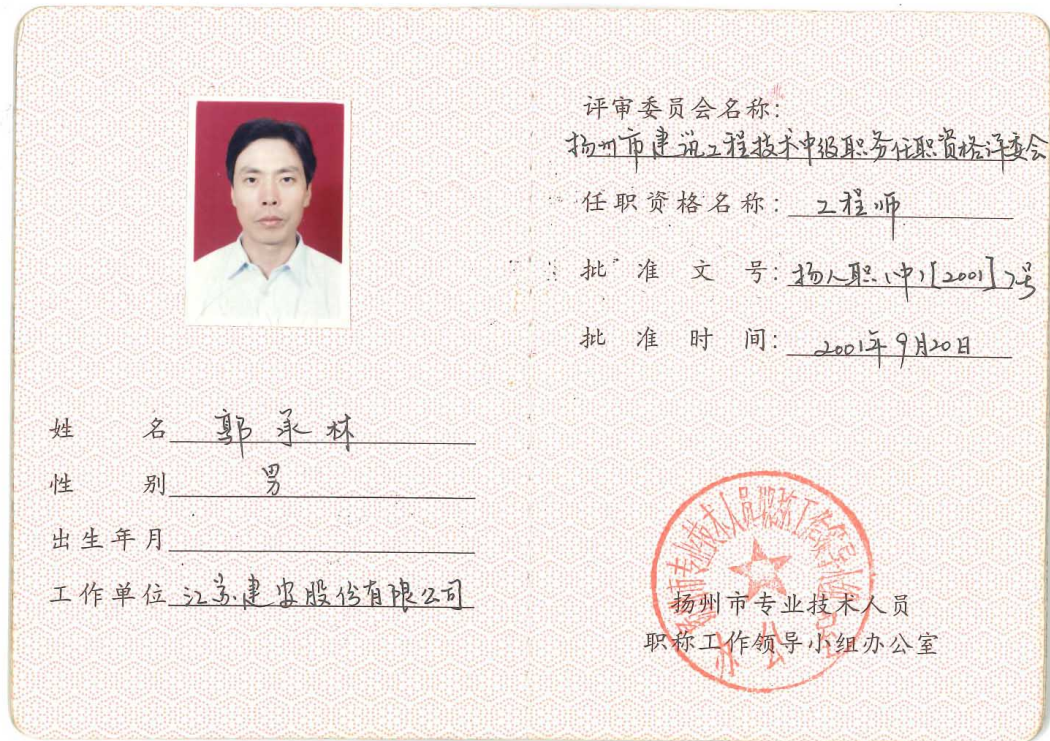 姓 名 郭承林
性 别 男
出生年月
工作单位 江苏建安股份有限公司
评审委员会名称:
扬州市建筑工程技术中级职务任职资格评委会
任职资格名称: 工程师
批 准 文 号: 扬人职(中)[2001]7号
批 准 时 间: 2001年9月20日
扬州市专业技术人员职称工作领导小组
办公室
扬州市专业技术人员
职称工作领导小组办公室